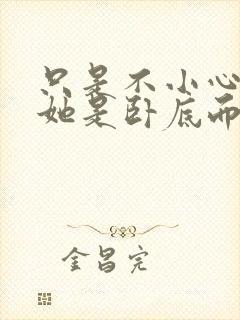 只是不小心
她是卧底而
金昌完